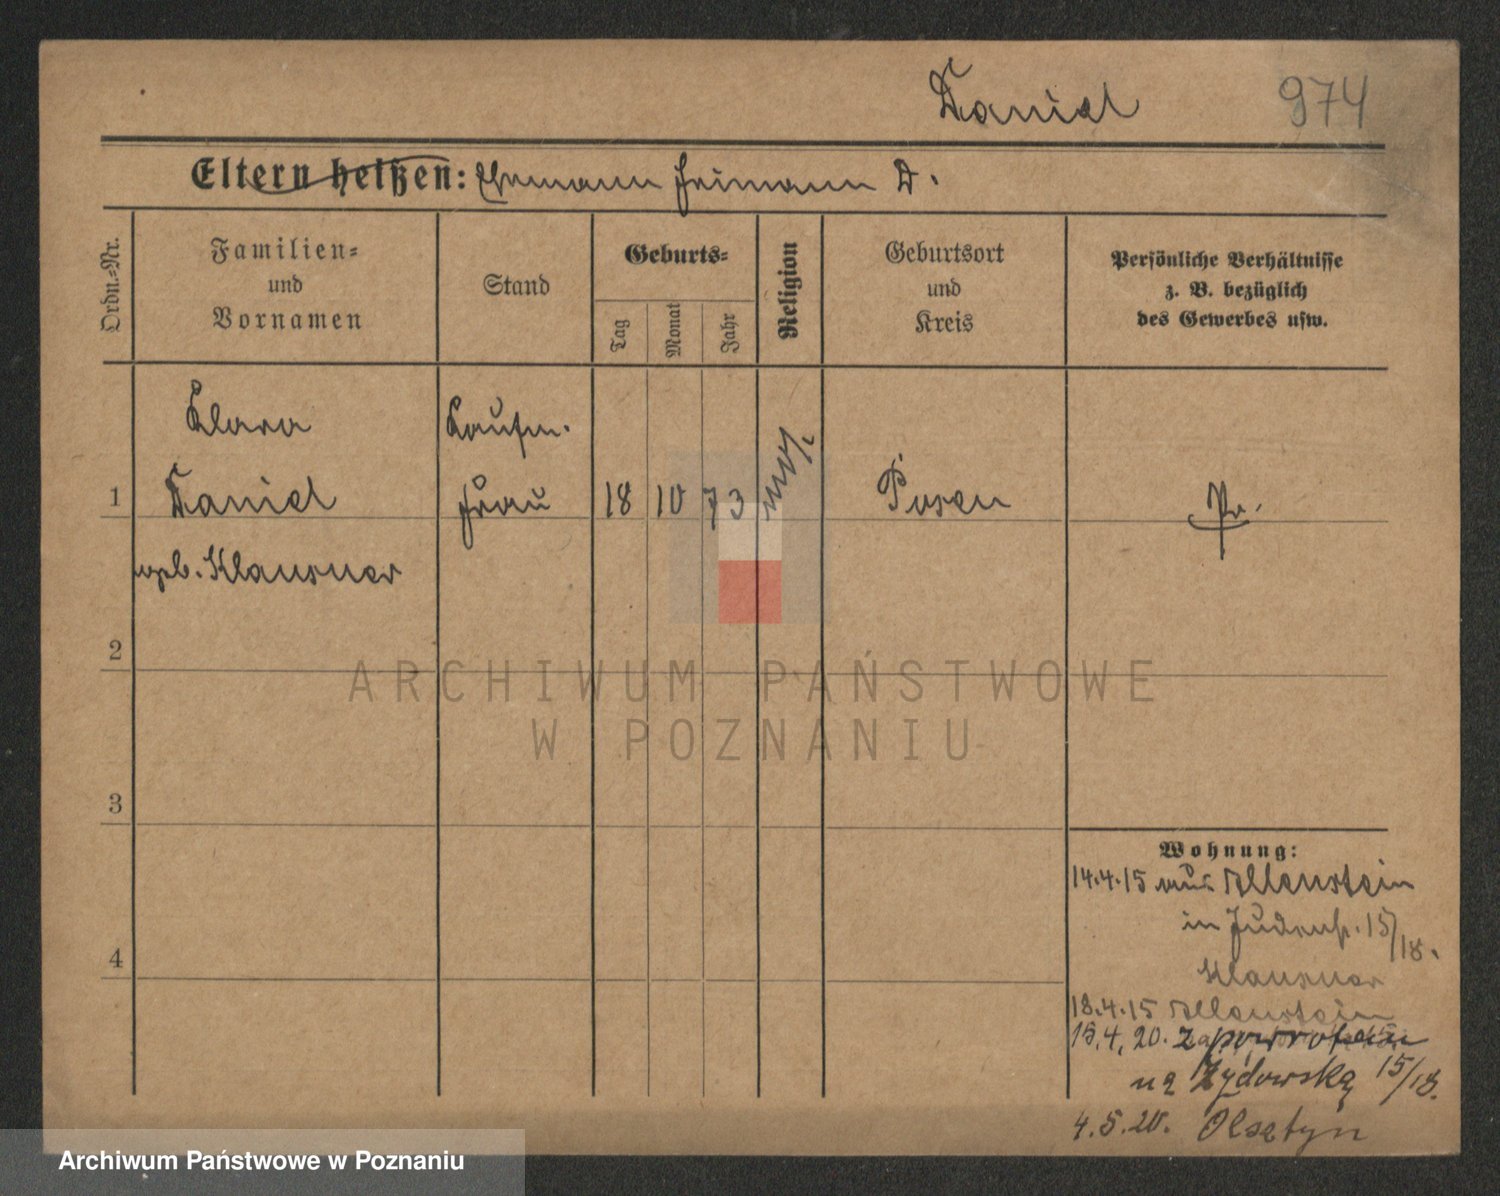 Daniel 974
Eltern heißen: Ehemann Heimann D.
Ordn.=Nr.
Familien=
und
Vornamen
Stand
Geburts=
Tag
Monat
Jahr
Religion
Geburtsort
und
Kreis
Persönliche Verhältnisse
z. B. bezüglich
des Gewerbes usw.
Klara Kaufm.
1 Daniel Frau 18 10 73 mos. Posen Pr.
geb. Klausner
2
3
4
Wohnung:
14.4.15 aus Allenstein
in Judenstr. 15/18.
Klausner
18.4.15 Allenstein
15.4.20. z powrotem
na Żydowską 15/18.
4.5.20. Olsztyn
ARCHIWUM PAŃSTWOWE
W POZNANIU
Archiwum Państwowe w Poznaniu